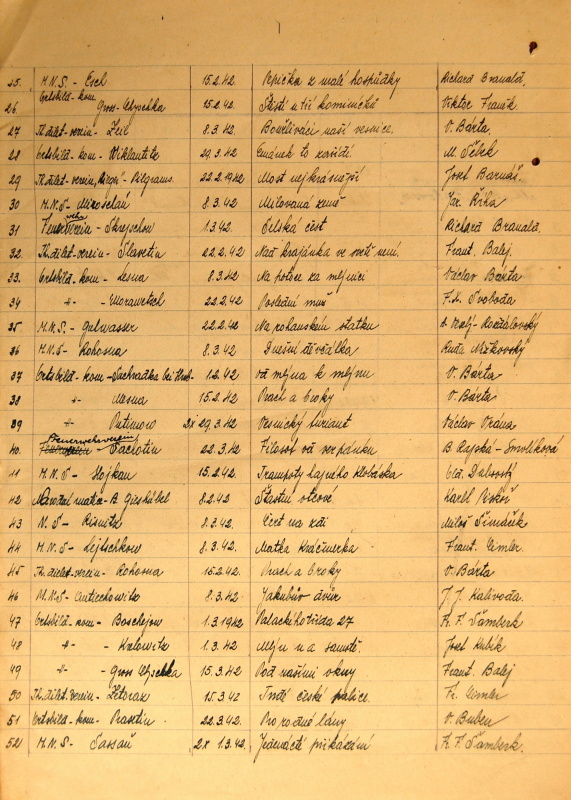 25. M.N.S. - Esel 15.2.42. Pepička z malé hospůdky Richard Branald.
26. Ortsbild. kom. Gross Chyschka 15.2.42. Štěstí u tří kominíčků Viktor Frank.
27 Th. dilet-verein - Zeil 8.3.42. naší vesnice. V. Bárta.
28 Ortsbild.- kom.- Wiklantitz 29.3.42 to zařídí. M. Píbek
29 Th. dilet-verein "Rieger" - Pilgrams. 22.2.1942 Most nejkrásnější Josef Barnáš.
30 M.N.S. - Miroslau 8.3.42. Milovaná zem Jar. Říha
31 Feuerwehr Verein - Skrejschov 1.3.42 Selská čest Richard Branald.
32. Th. dilet-verein - Slavetin 22.2.42 Nad krajánka ve světě není. Frant. Balej.
33. Ortsbild - kom - Lesna 8.3.42 Na potoce za mlejnici Václav Bárta
34 -"- - Morawetsch 22.2.42 Poslední muž F.X. Svoboda
35 M.N.S. - Gutwasser 22.2.42 Na pohanském statku A. Veselý - Kozdálovský
36 M.N.S - Rohosna 8.3.42. Dnešní děvčátka Ruda Mížkovský
37 Ortsbild - kom - bei 1.2.42 Od mlejna k mlejnu V. Bárta
38 -"- Mesna 15.2.42 Prach a broky V. Bárta.
39 -"- Putimow 2x 29.3.42 Vesnický furiant Václav Vrána.
40. Feuerwehrverein - Sacrotin 22.3.42 Filosof od verpánku B. Rajská - Smolíková
41 M.N.S - Stojkau 15.2.42. Trampoty hajného Klobáska
42 Národní matice - B. Gieshübel 8.2.42 Šťastní otcové Karel Piskoř
43 N.S - Risnitz 8.3.42. Čert na zdi Miloš Šimáček
44 M.N.S - Lejtschkow 8.3.42. Matka Kráčmerka Frant. Cimler.
45 Th. dilet-verein - Rohosna 15.2.42. Prach a broky V. Bárta
46 M.N.S - Antiechowitz 8.3.42. Jakubův dvůr J. J. Kalivoda.
47 Ortsbild - kom - Boschejow 1.3.1942 Palackého třída 27 F. F. Šamberk
48 -"- - Kalowitz 1.3.42 Mlejn na samotě. Josef Kubík
49 -"- - Gross Chyschka 15.3.42 Pod našimi okny Frant. Balej
50 Th. dilet-verein - Zetoraz 15.3.42 Tvrdé české palice. Fr. Cimler
51 Ortsbild - kom. - Prasetin 22.3.42. Pro rodné lány V. Buben
52 M.N.S - Sassau 2x 1.3.42. Jedenácté přikázání F. F. Šamberk.